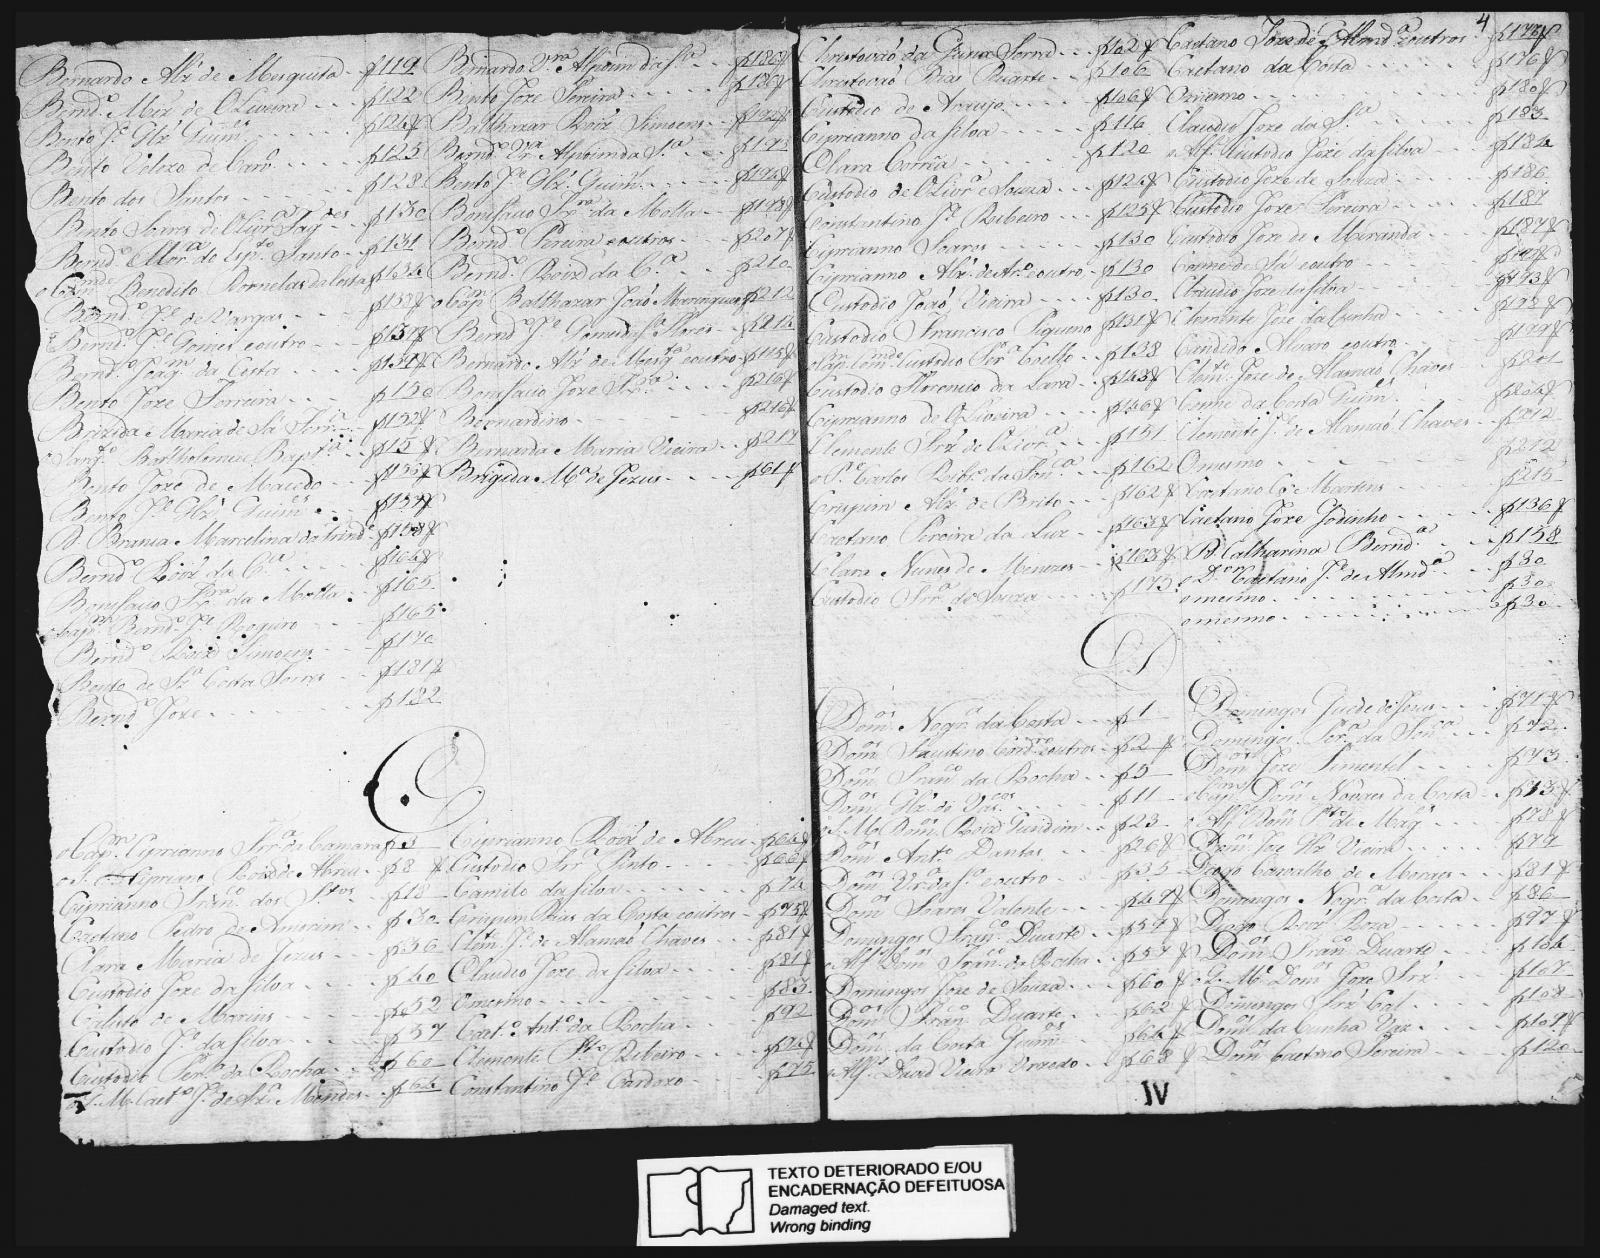 Bernardo Alz' de Mesquita - f119
Bernd.º Miz' de Oliveira - - - f122
Bento J.e Glz' Guim.es - - - f124f
Bento Velozo de Carv.º - - - f125
Bento dos Santos - - - f128
Bento Soares de Oliv.ra - f130
Bernd.º Mor.ª do Esp.to Santo - f131
Benedito Dornelas da Costa f134
Bernd.º J.e de Vargas - - - f137f
Bernd.º J.e Gomes e outro - - f137f
Bernd.º Joaq.m da Costa - - - f149f
Bento Joze Ferreira - - - f150
Brizida Maria de Sá - f152f
Sarg.to Bartholomeu Bapt.ª - f15 f
Bento Joze de Macedo - - f155f
Bento J.e Glz' Guim.es - - f157f
D. Branca Marcelina da Trind.e f158f
Bernd.º Roiz' da C.ª - - - f164f
Bonifacio Fr.ra da Motta - f165
Cap.m Bernd.º J.e - f165
Bernd.º Roiz' Simoens - - f170
Bento de Sz.ª Costa Torres - - f181f
Bernd.º Joze - - - f182
Bernardo Vr.ª Alpoim da S.ª - - f186f
Bento Joze Pereira - - - f186f
Balthazar Roiz' Simoens - - f192f
Bernd.º Vr.ª Alpoim da S.ª - f195
Bento J.e Glz' Guim.es - - - f194f
Bonifacio Fr.ra da Motta - - f198f
Bernd.º Pereira e outros - - - f207f
Bernd.º Roiz' da C.ª - - f210
o Cap.m Balthazar João f212
Bernd.º J.e - f214
Bernardo Alz' de Mesq.ta e outro - f215f
Bonifacio Joze - - - f216f
Bernardino - - - f216f
Bernarda Maria Vieira - - f217
Brigida M.ª de Jezus - - - f61f
C
o Cap.m Ciprianno Fr.ª da Camara f3
o S. M. Cipriano Roiz' de Abreu - f8 f
Ciprianno Fran.co dos S.tos - f18
Caetano Pedro de Amorim - f30
Clara Maria de Jezus - - - f36
Custodio Joze da Silva - - f40
Calisto de - f52
Custodio J.e da Silva - - - f57
Custodio Per.ª da Rocha - - f60
o S. M. Caet.º J.e de Mendes - f64
Ciprianno Roiz' de Abreu - f64f
Custodio Fr.ª Pinto - - - f66f
Camilo da Silva - - - f74
Crispim Dias da Costa e outros - f75f
Clem.te J.e de Alamão Chaves - - f81f
Claudio Joze da Silva - - - f81f
O mesmo - - - f83
Caet.º Ant.º da Rocha - - - f92
Clemente Ribeiro - - - f94f
Constantino J.e Cardozo - - - f95
4
Christovão da Guerra - - - f102f
Christovão Dias Duarte - - - f106
Custodio de Araujo - - - f106f
Ciprianno da Silva - - - f116
Clara Correa - - - f120
Custodio de Oliv.ra e Souza - - f124f
Constantino J.e Ribeiro - - - f125f
Ciprianno Soares - - - f130
Ciprianno Alz' de Ar.º e outro - f130
Custodio João Vieira - - - f130
Custodio Francisco Piqueno f131f
o Cap.m Com.de Custodio Fr.ª Coelho - f138
Custodio da Lara - - f143f
Ciprianno de Oliveira - - - f146f
Clemente Frz' de Oliv.ra - f151
o P.e Carlos Rib.º da Fon.ca - f162
Crispim Alz' de Brito - - f162f
Caetano Pereira da Luz - - f163f
Clara Nunes de Menezes - f163f
Custodio Fr.ª de Souza - - f175
Caetano Joze de Almd.ª e outros f175f
Caetano da Costa - - - f176f
O mesmo - - - f180f
Claudio Joze da S.ª - - - f183
o Alf.s Custodio Joze da Silva - - - f184
Custodio Joze de Souza - - - f186
Custodio Joze Pereira - - - f187
Custodio Joze de Miranda - - - f187f
Cosme de Sá e outro
Claudio Joze da Silva - - - f193f
Clemente Joze da Cunha - - - f198f
Candido Alvaro e outro - - - f199f
Clem.te Joze de Alamão Chaves - f201
Cosme da Costa Guim.es - - - f204f
Clemente J.e de Alamão Chaves - f212
O mesmo - - - f212
Caetano Martins - - - f215
Caetano Joze Godinho - - - f136f
D. Catharina Bernd.ª - - f158
o D.or Caetano J.e de Almd.ª - - f30
o mesmo - - - f30
o mesmo - - - f30
D
Dom.os Nogr.ª da Costa - - - f1
Dom.os Faustino Cordr.º e outros - f2
Dom.os Fran.co da Rocha - - f5
Dom.os Glz' de - - - f11
o S. M. Dom.os Roiz' - - - f23
Dom.os Ant.º Dantas - - - f26f
Dom.os Vr.ª da S.ª e outro - - - f35
Dom.os Soares Valente - - - f47f
Domingos Fran.co Duarte - - f54f
o Alf.s Dom.os Fran.co da Rocha - f57f
Domingos Joze de Souza - - - f60f
Dom.os Fran.co Duarte - - - f62f
Dom.os da Costa Guim.es - - - f64f
o Alf.s David Vieira - - f68f
Domingos Guede de Jesus - - - f71f
Domingos Fer.ª da Fon.ca - - - f72
Dom.os Joze Pimentel - - - f73
o Cap.m Dom.os Novaes da Costa - - f73f
o Alf.s Dom.os P.to de Mag.es - f78f
Dom.os Joze Glz' Vieira - - - f79
Diogo Carvalho de Moraes - - - f81f
Domingos Nogr.ª da Costa - - f86
Diogo Roiz' Roza - - - f97f
Dom.os Fran.co Duarte - - - f104
o S. M. Dom.os Joze Frz' - - - f107
Domingos Frz' - - - f108
Dom.os da Cunha Vaz - - - f109f
Dom.os Caetano Pereira - - - f120
IV
TEXTO DETERIORADO E/OU
ENCADERNAÇÃO DEFEITUOSA
Damaged text.
Wrong binding